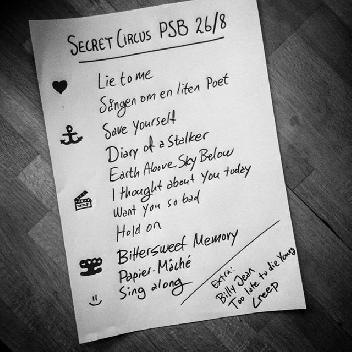 SECRET CIRCUS PSB 26/8
Lie to me
Sången om en liten Poet
Save Yourself
Diary of a Stalker
Earth Above, Sky Below
I thought about You today
Want You so bad
Hold on
Bittersweet Memory
Papier-Mâché
Sing along
Extra:
Billy Jean
Too late to die Young
Creep